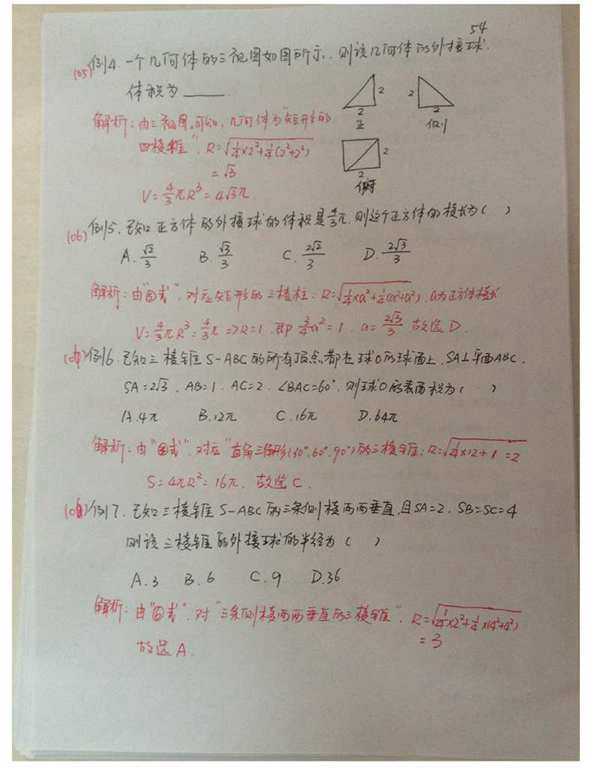 54
(05) 例4. 一个几何体的三视图如图所示, 则该几何体的外接球
体积为 ______.
2 2 正
2 2 侧
2 2 俯
解析: 由三视图可知, 几何体为"矩形的
四棱锥", R=√(1/4×2²+1/4(2²+2²))
=√3
V=4/3πR³=4√3π
(06) 例5. 已知正方体的外接球的体积是4/3π, 则这个正方体的棱长为( )
A. √2/3 B. √3/3 C. 2√2/3 D. 2√3/3
解析: 由"图表", 对应矩形的三棱柱: R=√(1/4×a²+1/4(a²+a²)), a为正方体棱长
V=4/3πR³=4/3π => R=1. 即 3/4a²=1. a=2√3/3 故选D.
例6. 已知三棱锥S-ABC的所有顶点都在球O的球面上, SA⊥平面ABC,
SA=2√3, AB=1. AC=2. ∠BAC=60°, 则球O的表面积为( )
A.4π B.12π C.16π D.64π
解析: 由"图表", 对应"直角三角形(30°,60°,90°)的三棱锥: R=√(1/4×12+1)=2
S=4πR²=16π. 故选C.
例7. 已知三棱锥S-ABC的三条侧棱两两垂直, 且SA=2. SB=SC=4
则该三棱锥的外接球的半径为( )
A.3 B.6 C.9 D.36
解析: 由"图表", 对"三条侧棱两两垂直的三棱锥", R=√(1/4×2²+1/4×(4²+4²))
=3
故选A.